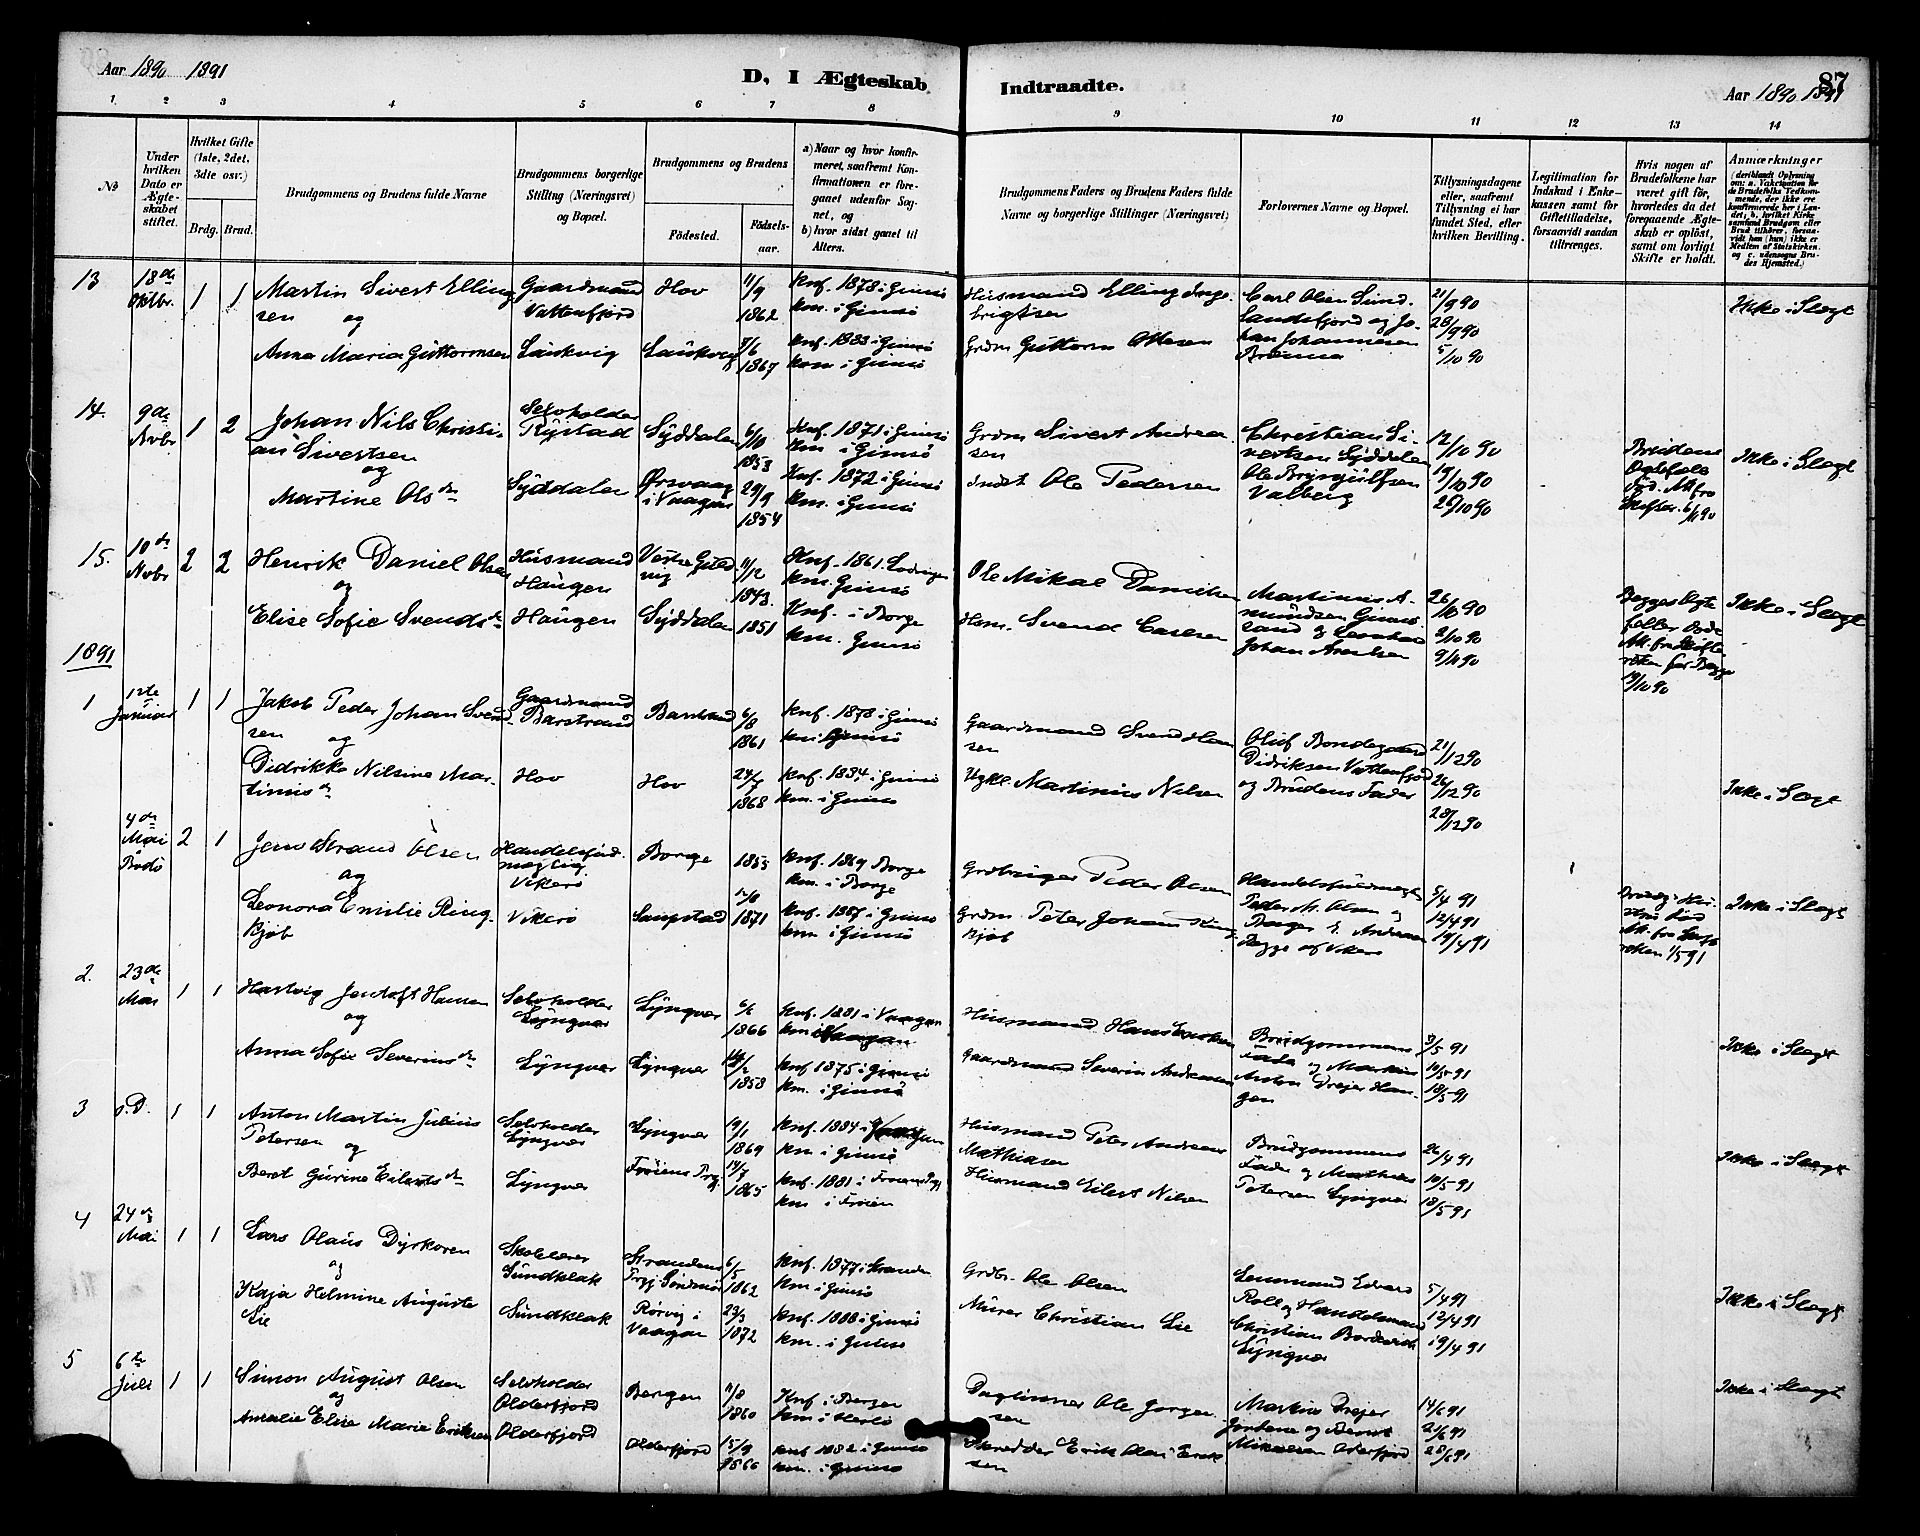 Aar 1890 1891
D, I Ægteskab Indtraadte.
87
Aar 1890 1891
1. 2 3 4 5 6 7 8 9 10 11 12 13 14
No
Under hvilken Dato er Ægteskabet stiftet.
Hvilket Gifte (1ste, 2det, 3die osv.)
Brdg. Brud.
Brudgommens og Brudens fulde Navne
Brudgommens borgerlige Stilling (Næringsvei) og Bopæl.
Brudgommens og Brudens
Fødested. Fødselsaar.
a) Naar og hvor konfirmeret, saafremt Konfirmationen er foregaaet udenfor Sognet, og
b) hvor sidst gaaet til Alters.
Brudgommens Faders og Brudens Faders fulde Navne og borgerlige Stillinger (Næringsvei)
Forlovernes Navne og Bopæl.
Tillysningsdagene eller, saafremt Tillysning ei har fundet Sted, efter hvilken Bevilling.
Legitimation for Indskud i Ænkekassen samt for Giftetilladelse, forsaavidt saadan tiltrænges.
Hvis nogen af Brudefolkene har været gift før, hvorledes da det foregaaende Ægteskab er opløst, samt om lovligt Skifte er holdt.
Anmærkninger
13 18de Oktbr. 1 1
Martin Sivert Ellingsen og
Gaardmand Vattenfjord
Hov
11/9 1862
Knf. 1878 i Gimsø
km. i Gimsø
Husmand Elling Ingebrigtsen
Carl Olsen Sundlandsfjord og Johan Johannesen Brenna
21/9 90
28/9 90
5/10 90
Ikke i Slegt
Anna Maria Guttormsen
Laukvig
Laukvig
1867
Knf. 1883 i Gimsø
km i Gimsø
Grdm Guttorm Ottesen
14. 9de Novbr 1 2
Johan Nils Christian Sivertsen
og
Selvholder Rystad
Syddalen
6/10 1853
Knf. 1871 i Gimsø
km i Gimsø
Grdm Sivert Andreasen
Christian Sivertsen Syddalen
Ole Brynjulfsen Valberg
12/10 90
19/10 90
26/10 90
Brudens Ægtefælle død. Att. fra Skifter. 6/11 90
Ikke i Slegt
Martine Olsdr
Syddalen
Ørsvaag i Vaagan
29/9 1854
Knf. 1872 i Gimsø
km. i Gimsø
Indst Ole Pedersen
15. 10de Novbr 2 2
Henrik Daniel Olsen
og
Husmand Haugen
11/12 1843.
Knf. 1861.
km. Gimsø
Ole Mikal Danielsen
Martinus Amundsen
Johan Arntsen
26/10 90
2/11 90
9/11 90
19/10 90
Ikke i Slegt
Elise Sofie Svendsdr
Haugen
Syddalen
1851
Knf. i Borge
km. Gimsø
Hom. Svend Carlsen
1891
1 1ste Januar 1 1
Jakob Peder Johan Svendsen og
Gaardmand Barstrand
Barstrand
6/8 1861
Knf. 1878 i Gimsø
km i Gimsø
Gaardmand Svend Hansen
Oluf Bondegaard Didriksen Vattenfjord og Brudens Fader
21/12 90
26/12 90
28/12 90
Ikke i Slegt
Didrikke Nilsine Martinusdr
Hov
Hov
24/7 1868
Knf. 1884 i Gimsø
km. i Gimsø
Martinus Nilsen
4de Mai Bodø 2 1
Jens Strand Olsen
og
Vikerø
Borge
1855
Knf. 1869 Borge
km. i Borge
Peder Olsen
Peder M. Olsen og
Begge af Vikerø
5/4 91
12/4 91
19/4 91
Ikke i Slegt
Leonora Emilie Ringkjøb
Vikerø
Saupstad
1871
Knf. 1887 i Gimsø
km i Gimsø
Grdm. Peter Johan Ringkjøb
2. 23de Mai 1 1
Hartvig Jentoft Hansen
og
Selvholder Lyngvær
Lyngvær
1866
Knf. 1881 i Vaagan
km i Vaagan
Husmand Hans
Brudgommens Fader og Martin Anton Drejer Hansen
3/5 91
10/5 91
18/5 91
Ikke i Slegt
Anna Sofie Severinsdr
Lyngvær
Lyngvær
1858
Knf. 1875 i Gimsø
km. i Gimsø
Gaardmand Severin Andreasen
3 s. D. 1 1
Anton Martin Julius Petersen og
Selvholder Lyngvær
Lyngvær
19/1 1869
Knf. 1884 i Vaagan
km i Gimsø
Husmand Peter Andreas Mathiasen
Brudgommens Fader og Mathias Petersen Lyngvær
26/4 91
10/5 91
18/5 91
Ikke i Slegt
Beret Gurine Eilertsdr
Lyngvær
Frøiens Prgj
14/7 1865
Knf. 1881 i Frøiens Prgj
km i Frøien
Husmand Eilert Nilsen
4 24de Mai 1 1
Lars Olaus Dyrkoren
og
Skolelærer Sundklak
Strandens Prgj Søndmør
6/5 1862
Knf. 1877 i Stranden
km. i Gimsø
Grdbr. Ole Olsen
Lensmand Edvard Roll og Handelsmand Christian Bordevick Lyngvær
5/4 91
12/4 91
19/4 91
Ikke i Slegt
Kaja Helmine Auguste Lie
Sundklak
Rørvig i Vaagan
23/3 1872
Knf. 1888 i Gimsø
km. i Gimsø
Murer Christian Lie
5 6te Juli 1 1
Simon August Olsen
og
Selvholder Olderfjord
Bergen
11/8 1860
Knf. i Bergen
km. i Herlø
Ole Jørgensen
Martin Drejer Jordens og Bernt Mikalsen Olderfjord
14/6 91
21/6 91
28/6 91
Ikke i Slegt
Amalie Elise Marie Eriksen
Olderfjord
Olderfjord
15/9 1866
Knf. 1882 i Gimsø
km. i Gimsø
Skredder Erik Olai Eriksen